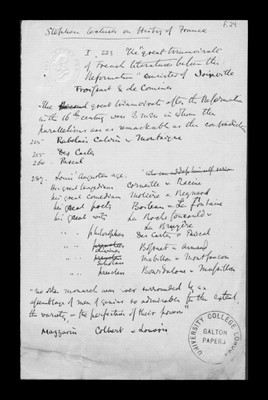 F. 24
Stephen Lectures on History of France
I. 223 The "great triumvirate
of French literature before the
Reformation" consisted of Joinville
Froissart & de Comines
The great triumvirate after the Reformation
in the 16th century was 3 men in whom the
parallelisms are as remarkable as the contradictions
Rabelais Calvin & Montaigne
Des Cartes
Pascal
Louis' Augustan age.
His great tragedians Corneille - Racine
his great comedian Molière - Regnard
his great poets Boileau - La Fontaine
his great wits La Rochefoucauld -
La Bruyère
" " philosophers Des Cartes - Pascal
" " divines Bossuet - Arnaud
" " scholars Mabillon - Montfaucon
" " preachers Bourdaloue - Massillon
"no other monarch was ever surrounded by an
assemblage of men of genius so admirable for the extent
the variety, & the perfection of their powers"
Mazzarin Colbert - Louvois
UNIVERSITY COLLEGE LONDON
GALTON
PAPERS